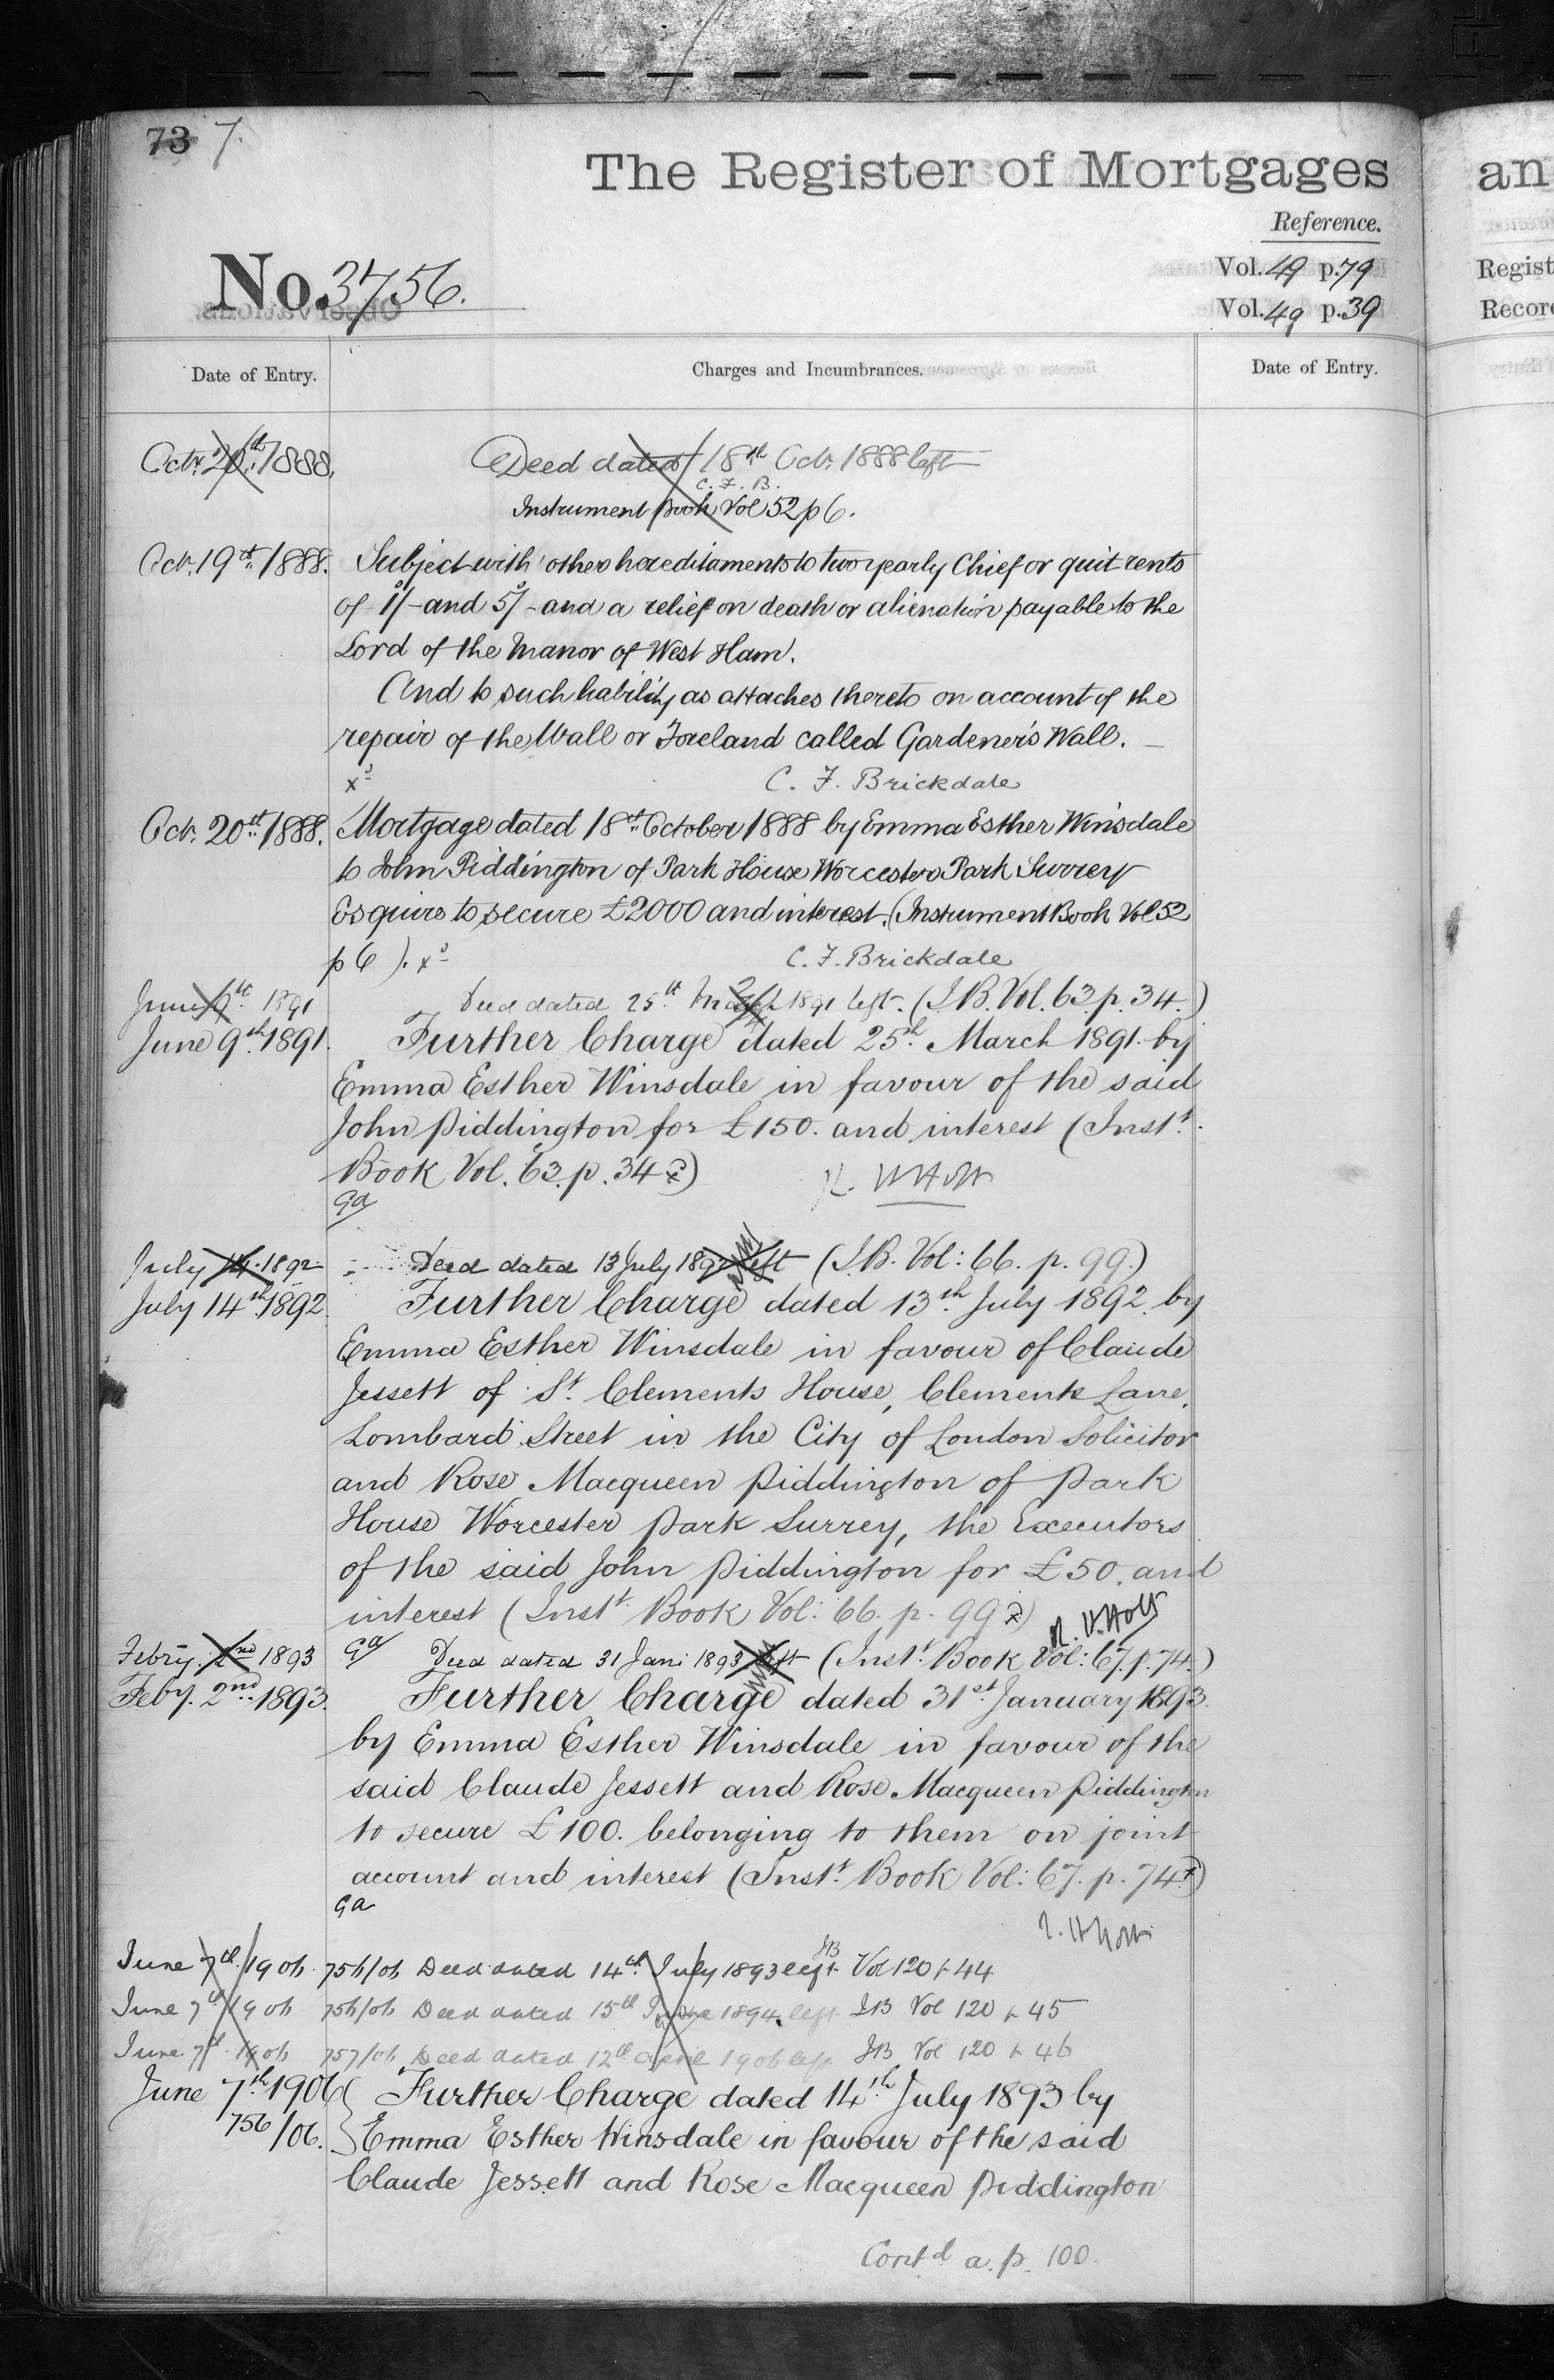 73 7.
The Register of Mortgages
an
Reference.
No. 3756.
Vol. 49 p. 79
Regist
Vol. 49 p. 39
Record
Date of Entry.
Charges and Incumbrances.
Date of Entry.
Octr. 20th 1888.
Deed dated 18th Octr. 1888 left
C. F. B.
Instrument Book Vol 52 p 6.
Oct. 19th 1888. Subject with other hereditaments to two yearly Chief or quit rents
of 1/- and 5/- and a relief on death or alienation payable to the
Lord of the Manor of West Ham.
And to such liability as attaches thereto on account of the
repair of the Wall or Foreland called Gardener's Wall. —
C. F. Brickdale
Oct. 20th 1888. Mortgage dated 18th October 1888 by Emma Esther Winsdale
to John Piddington of Park House Worcester Park Surrey
Esquire to secure £2000 and interest. (Instrument Book Vol 52
p 6).
C. F. Brickdale
June 9th 1891 Deed dated 25th March 1891 left (I.B. Vol. 63. p. 34.)
June 9th 1891. Further Charge dated 25th March 1891 by
Emma Esther Winsdale in favour of the said
John Piddington for £150. and interest (Instt.
Book Vol. 63. p. 34)
Ga
July 14. 1892 Deed dated 13 July 1892 left (I.B. Vol: 66. p. 99.)
July 14th 1892. Further Charge dated 13th July 1892 by
Emma Esther Winsdale in favour of Claude
Jessett of St. Clements House, Clements Lane,
Lombard Street in the City of London Solicitor
and Rose Macqueen Piddington of Park
House Worcester Park Surrey, the Executors
of the said John Piddington for £50. and
interest (Instt. Book Vol: 66. p. 99)
Febry. 2nd 1893 Ga Deed dated 31 Jan: 1893 left (Instt. Book Vol: 67. p. 74.)
Feby. 2nd 1893. Further Charge dated 31st January 1893.
by Emma Esther Winsdale in favour of the
said Claude Jessett and Rose Macqueen Piddington
to secure £100. belonging to them on joint
account and interest (Instt. Book Vol: 67. p. 74)
Ga
June 7th 1906 756/06 Deed dated 14th July 1893 left IB Vol 120 p 44
June 7th 1906 756/06 Deed dated 15th June 1894 left IB Vol 120 p 45
June 7th 1906 757/06 Deed dated 12th April 1906 left IB Vol 120 p 46
June 7th 1906 Further Charge dated 14th July 1893 by
756/06. Emma Esther Winsdale in favour of the said
Claude Jessett and Rose Macqueen Piddington
Contd a. p. 100.